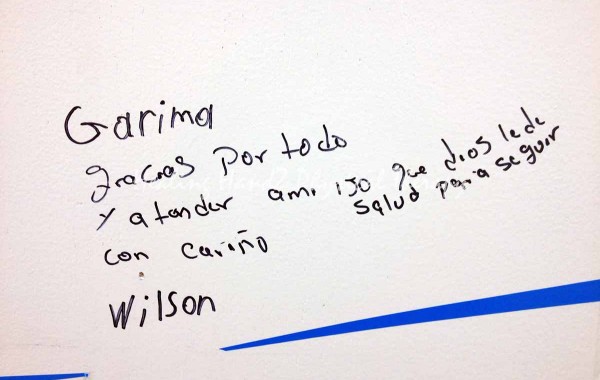 Garima
gracias por todo
y atender ami ijo que dios le de
salud para seguir
con cariño
Wilson